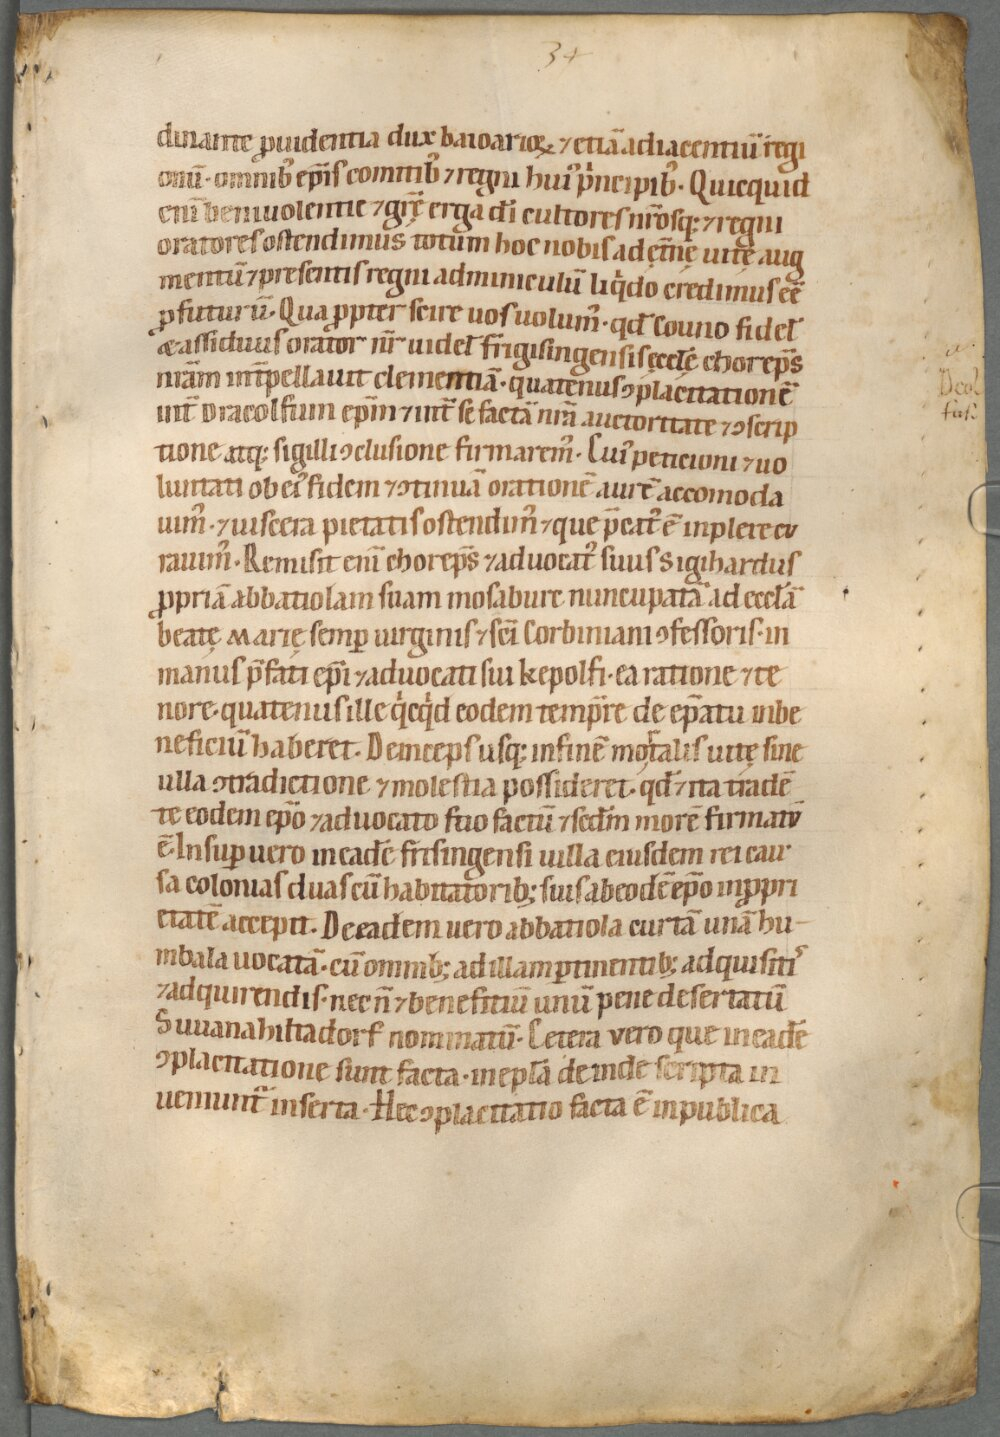 34
diuante ꝓuidentia dux baioarioꝝ ⁊ etiā adiacentiū regi
onū · omnibꝰ ep̄is comitibꝰ ⁊ regni huiꝰ p̍ncipibꝰ · Quicquid
eni̅ beniuolentie ⁊ gr̄ę erga dī cultores nr̄osq; ⁊ regni
oratores ostendimus totum hoc nobis ad ęt̄nę uitę aug
mentū ⁊ presentis regni adminiculū liq̍do credimus eē
ꝓfuturū · Qua ꝓpter scire uos uolum̄ · qd̄ Couno fidel̄
& assiduus orator nr̄ uidel̄ frigisingensis ęcclę̄ chorep̄s
nrā̄m int̄pellauit clementiā · quatenus ꝯplacitationē
int̄ Dracolfum ep̄m ⁊ int̄ se factā nrā̄ auctoritate ⁊ ꝯscrip
tione atq; sigilli ꝯclusione firmarem̄ · Cuiꝰ peticioni ⁊ uo
luntati ob eiꝰ fidem ⁊ ꝯtinuā orationē aurē accomoda
uim̄ · ⁊ uiscera pietatis ostendim̄ ⁊ que p̄catꝰ ē inplere cu
rauim̄ · Remisit eni̅ chorep̄s ⁊ aduocatꝰ suus Sigihardus
ꝓpriā abbatiolam suam mosabure nuncupatā ad eccl̄ā
beatę Marię semꝑ uirginis ⁊ sc̄i Corbiniani ꝯfessoris · in
manus p̄fati ep̄i ⁊ aduocati sui kepolfi · ea ratione ⁊ te
nore · quatenus ille q̍cq̍d eodem temp̄re de ep̄atu in be
neficiū haberet · Deinceps usq; in finē mortalis uitę sine
ulla ꝯtradictione ⁊ molestia possideret · qd̄ ⁊ ita tradē
te eodem ep̄o ⁊ aduocato suo factū ⁊ sedm̄ morē firmatū
ē · Insuꝑ uero in eadē frisingensi uilla eiusdem rei cau
sa colonias duas cū habitatorib; suis ab eodē ep̄o in ꝓpri
etatē accepit · De eadem uero abbatiola curtā unā hu-
mbala uocatā · cū omnib; ad illam ꝑtinentib; adquisitiˢ
⁊ adquirendis · nec n̄ ⁊ benefitiū unū pene desertatū
Suuanahiltadorf nominatū · Cetera vero que in eadē
ꝯplacitatione sunt facta · in ep̄lā deinde scripta in
ueniunt̄ inserta · Hec ꝯplacitatio facta ē in publica